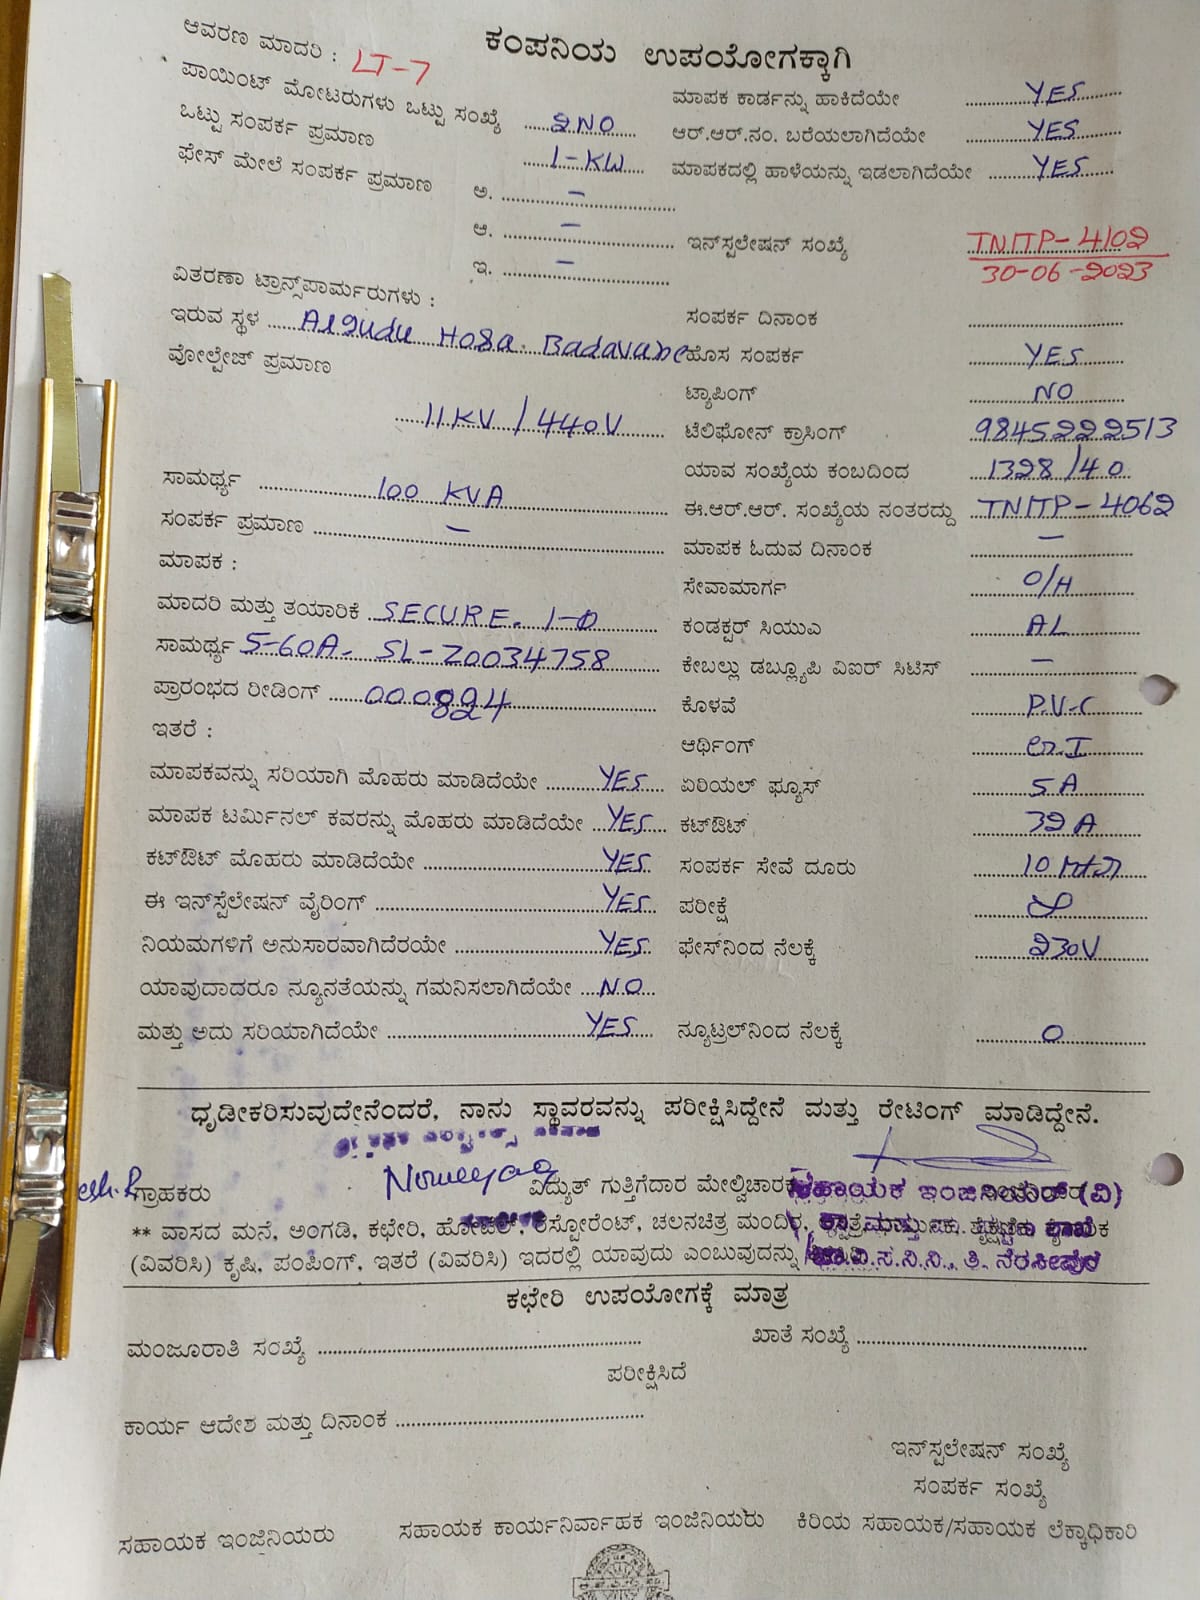 ಕಂಪನಿಯ ಉಪಯೋಗಕ್ಕಾಗಿ
ಆವರಣ ಮಾದರಿ : LT-7
ಪಾಯಿಂಟ್ ಮೋಟರುಗಳು ಒಟ್ಟು ಸಂಖ್ಯೆ 2NO
ಒಟ್ಟು ಸಂಪರ್ಕ ಪ್ರಮಾಣ 1-KW
ಫೇಸ್ ಮೇಲೆ ಸಂಪರ್ಕ ಪ್ರಮಾಣ
ಅ. –
ಆ. –
ಇ. –
ವಿತರಣಾ ಟ್ರಾನ್ಸ್‌ಪಾರ್ಮರುಗಳು :
ಇರುವ ಸ್ಥಳ Hosa Badavane
ವೋಲ್ಟೇಜ್ ಪ್ರಮಾಣ
11KV / 440V
ಸಾಮರ್ಥ್ಯ 100 KVA
ಸಂಪರ್ಕ ಪ್ರಮಾಣ –
ಮಾಪಕ :
ಮಾದರಿ ಮತ್ತು ತಯಾರಿಕೆ SECURE. 1-Ø
ಸಾಮರ್ಥ್ಯ 5-60A- SL-Z0034758
ಪ್ರಾರಂಭದ ರೀಡಿಂಗ್ 000824
ಇತರೆ :
ಮಾಪಕವನ್ನು ಸರಿಯಾಗಿ ಮೊಹರು ಮಾಡಿದೆಯೇ YES
ಮಾಪಕ ಟರ್ಮಿನಲ್ ಕವರನ್ನು ಮೊಹರು ಮಾಡಿದೆಯೇ YES
ಕಟ್‌ಔಟ್ ಮೊಹರು ಮಾಡಿದೆಯೇ YES
ಈ ಇನ್‌ಸ್ಪೆಲೇಷನ್ ವೈರಿಂಗ್ YES
ನಿಯಮಗಳಿಗೆ ಅನುಸಾರವಾಗಿದೆರಯೇ YES
ಯಾವುದಾದರೂ ನ್ಯೂನತೆಯನ್ನು ಗಮನಿಸಲಾಗಿದೆಯೇ NO
ಮತ್ತು ಅದು ಸರಿಯಾಗಿದೆಯೇ YES
ಮಾಪಕ ಕಾರ್ಡನ್ನು ಹಾಕಿದೆಯೇ YES
ಆರ್.ಆರ್.ನಂ. ಬರೆಯಲಾಗಿದೆಯೇ YES
ಮಾಪಕದಲ್ಲಿ ಹಾಳೆಯನ್ನು ಇಡಲಾಗಿದೆಯೇ YES
ಇನ್‌ಸ್ಪಲೇಷನ್ ಸಂಖ್ಯೆ TNITP-4102
30-06-2023
ಸಂಪರ್ಕ ದಿನಾಂಕ
ಹೊಸ ಸಂಪರ್ಕ YES
ಟ್ಯಾಪಿಂಗ್ NO
ಟೆಲಿಫೋನ್ ಕ್ರಾಸಿಂಗ್ 9845222513
ಯಾವ ಸಂಖ್ಯೆಯ ಕಂಬದಿಂದ 1328/40
ಈ.ಆರ್.ಆರ್. ಸಂಖ್ಯೆಯ ನಂತರದ್ದು TNITP-4062
ಮಾಪಕ ಓದುವ ದಿನಾಂಕ –
ಸೇವಾಮಾರ್ಗ O/H
ಕಂಡಕ್ಟರ್ ಸಿಯುಎ AL
ಕೇಬಲ್ಲು ಡಬ್ಲ್ಯೂಪಿ ವಿಐರ್ ಸಿಟಿಸ್ –
ಕೊಳವೆ P.V.C
ಆರ್ಥಿಂಗ್
ಏರಿಯಲ್ ಫ್ಯೂಸ್ 5A
ಕಟ್‌ಔಟ್ 32 A
ಸಂಪರ್ಕ ಸೇವೆ ದೂರು 10 Mtr
ಪರೀಕ್ಷೆ
ಫೇಸ್‌ನಿಂದ ನೆಲಕ್ಕೆ 230V
ನ್ಯೂಟ್ರಲ್‌ನಿಂದ ನೆಲಕ್ಕೆ 0
ಧೃಡೀಕರಿಸುವುದೇನೆಂದರೆ, ನಾನು ಸ್ಥಾವರವನ್ನು ಪರೀಕ್ಷಿಸಿದ್ದೇನೆ ಮತ್ತು ರೇಟಿಂಗ್ ಮಾಡಿದ್ದೇನೆ.
ಗ್ರಾಹಕರು ವಿದ್ಯುತ್ ಗುತ್ತಿಗೆದಾರ ಮೇಲ್ವಿಚಾರಕ ಸಹಾಯಕ ಇಂಜಿನಿಯರ್ (ವಿ)
** ವಾಸದ ಮನೆ, ಅಂಗಡಿ, ಕಛೇರಿ, ಹೋಟೆಲ್, ರೆಸ್ಟೋರೆಂಟ್, ಚಲನಚಿತ್ರ ಮಂದಿರ,
(ವಿವರಿಸಿ) ಕೃಷಿ, ಪಂಪಿಂಗ್, ಇತರೆ (ವಿವರಿಸಿ) ಇದರಲ್ಲಿ ಯಾವುದು ಎಂಬುವುದನ್ನು ವಿ.ಸ.ನಿ.ನಿ., ತಿ. ನರಸೀಪುರ
ಕಛೇರಿ ಉಪಯೋಗಕ್ಕೆ ಮಾತ್ರ
ಮಂಜೂರಾತಿ ಸಂಖ್ಯೆ ಖಾತೆ ಸಂಖ್ಯೆ
ಪರೀಕ್ಷಿಸಿದೆ
ಕಾರ್ಯ ಆದೇಶ ಮತ್ತು ದಿನಾಂಕ
ಇನ್‌ಸ್ಪಲೇಷನ್ ಸಂಖ್ಯೆ
ಸಂಪರ್ಕ ಸಂಖ್ಯೆ
ಸಹಾಯಕ ಇಂಜಿನಿಯರು ಸಹಾಯಕ ಕಾರ್ಯನಿರ್ವಾಹಕ ಇಂಜಿನಿಯರು ಕಿರಿಯ ಸಹಾಯಕ/ಸಹಾಯಕ ಲೆಕ್ಕಾಧಿಕಾರಿ